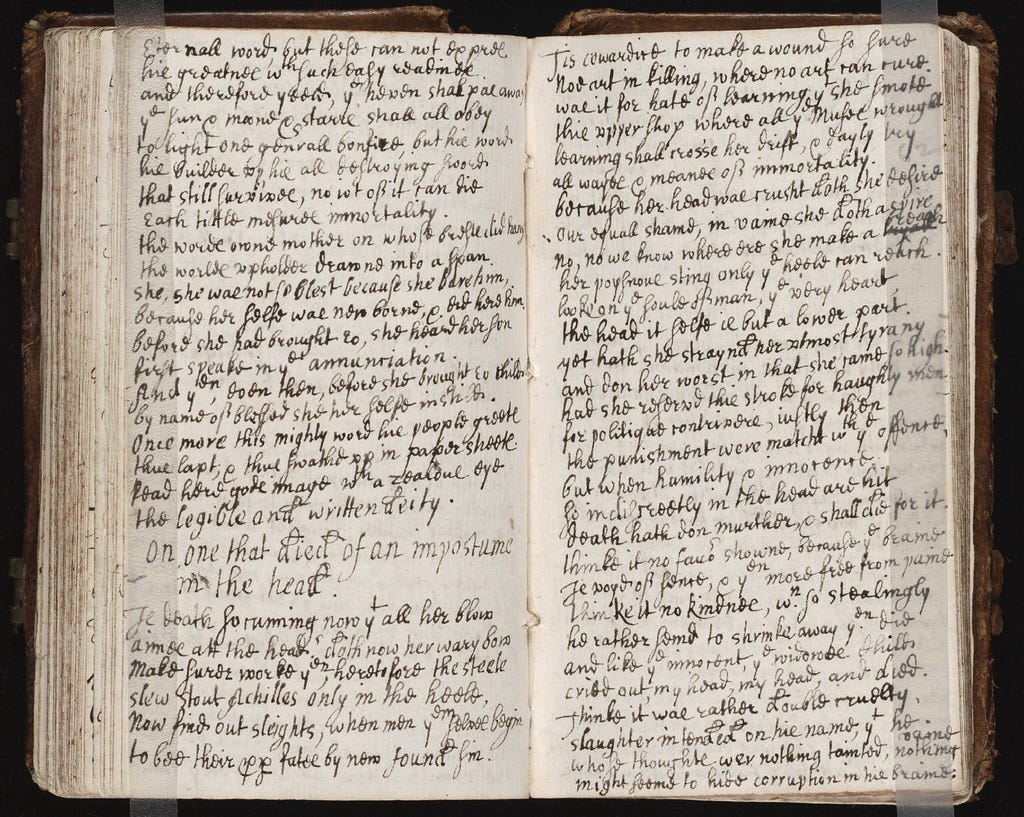 Eternall word, but these can not expres
his greatnes wth such easy readines.
and therefore yeeld, ye heven shal pas away
ye sun & moone & starrs shall all obey
to light one generall bonfire, but his word
his builder up his all destroying sword
that still survives, no iot of it can die
Each tittle mesures immortality.
the words owne mother on whose brests did hang
the worlds upholder drawne into a span.
she, she was not so blest because she bare him,
because her selfe was new borne, & did here him.
before she had brought to, she heard her son
first speake in ye annunciation.
And yen, even then, before she brought to child
by name of blessed she her selfe instild.
Once more this mighty word his people greets
thus lapt, & thus swathd up in paper sheets
Read here gods image wth a zealous eye
the legible and written deity.
On one that died of an impostume
in the head.
Is death so cunning now yt all her blow
aimes att the head? doth now her wary bow
make surer worke yen heretofore the steele
slew stout Achilles only in the heele,
Now find out sleights, when men ymselves begin
to bee their pp fates by new found sin.
Tis cowardice to make a wound so sure
No art in killing, where no art can cure.
was it for hate of learning yt she smote
this upper shop where all ye Muses wrought
learning shall crosse her drift, & dayly try
all wayes & meanes of immortality.
because her head was crusht doth she desire
our equall shame, in vaine she doth aspire
no, no we know where ere she make a breach
her poysnous sting only ye heele can reach.
looke on ye soule of man, ye very heart
the head it selfe is but a lower part.
yet hath she straynd her utmost tyranny
and don her worst in that she came so high.
had she reservd this stroke for haughty men
for politique contrivers, iustly then
the punishment were matcht wth ye offence,
but when humility & innocence
so indiscreetly in the head are hit
death hath don murther, & shall die for it.
thinke it no favour showne, because ye braine
Is voyd of sence, & yen more free from paine
thinke it no kindnes, wn so stealingly
he rather semd to shrinke away yen die
and like ye innocent, ye widowes child
cried out, my head, my head, and died.
Thinke it was rather double cruelty,
slaughter intended on his name, yt he
whose thoughts wer nothing tainted, nothing vaine
might seeme to hide corruption in his braine: